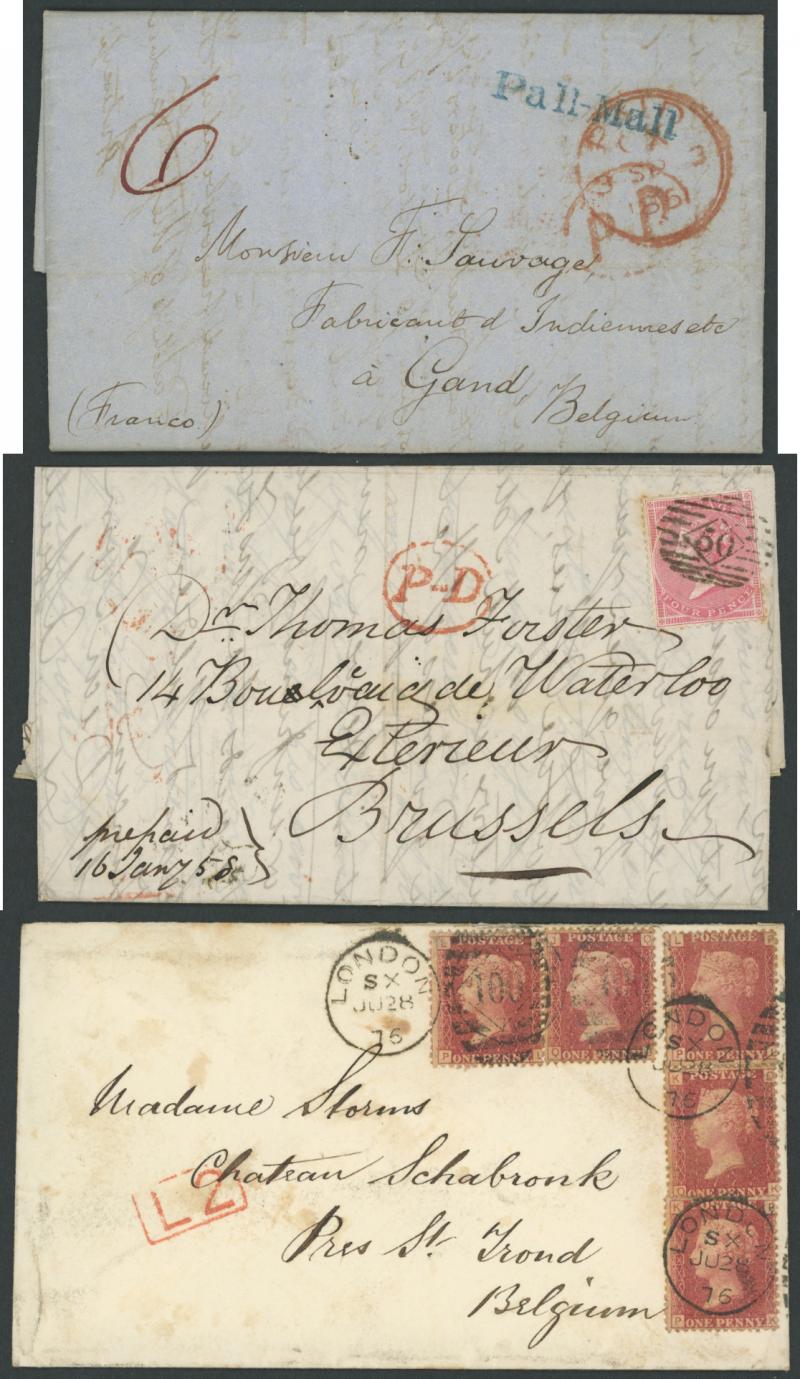 Pall-Mall
6
P P
Monsieur F. Sauvage,
Fabricant d Indiennes etc
à Gand,
(Franco)
Belgium
P-D
FOUR PENCE
Dr. Thomas Forster
14 Boulevard de Waterloo
Exterieur
Brussels
prepaid
16 Jany 58
LONDON
SX
JU 28
76
POSTAGE
ONE PENNY
100
POSTAGE
ONE PENNY
POSTAGE
ONE PENNY
LONDON
SX
JU 28
76
POSTAGE
ONE PENNY
Madame Storms
Chateau Schabronk
L2
Pres St. Trond
Belgium
LONDON
SX
JU 28
76
ONE PENNY